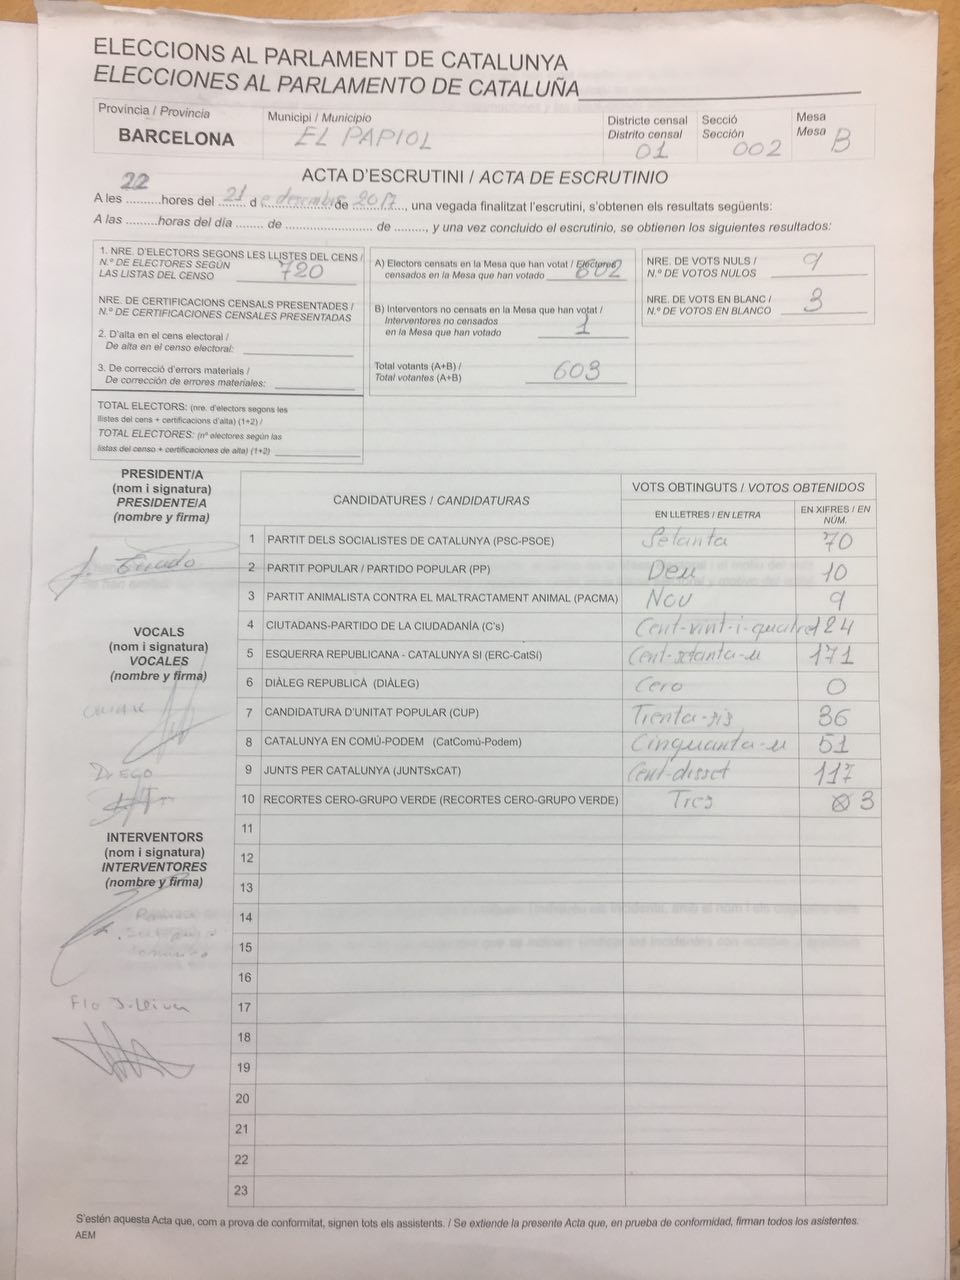 ELECCIONS AL PARLAMENT DE CATALUNYA
ELECCIONES AL PARLAMENTO DE CATALUÑA
Província / Provincia
BARCELONA
Municipi / Municipio
EL PAPIOL
Districte censal
Distrito censal
01
Secció
Sección
002
Mesa
Mesa
B
ACTA D'ESCRUTINI / ACTA DE ESCRUTINIO
A les 22 hores del 21 d e desembre de 2017, una vegada finalitzat l'escrutini, s'obtenen els resultats següents:
A las .........horas del día ........ de ........................ de ........, y una vez concluido el escrutinio, se obtienen los siguientes resultados:
1. NRE. D'ELECTORS SEGONS LES LLISTES DEL CENS /
N.º DE ELECTORES SEGÚN
LAS LISTAS DEL CENSO 720
NRE. DE CERTIFICACIONS CENSALS PRESENTADES /
N.º DE CERTIFICACIONES CENSALES PRESENTADAS
2. D'alta en el cens electoral /
De alta en el censo electoral:
3. De correcció d'errors materials /
De corrección de errores materiales:
TOTAL ELECTORS: (nre. d'electors segons les
llistes del cens + certificacions d'alta) (1+2) /
TOTAL ELECTORES: (nº electores según las
listas del censo + certificaciones de alta) (1+2)
A) Electors censats en la Mesa que han votat / Electores
censados en la Mesa que han votado 602
B) Interventors no censats en la Mesa que han votat /
Interventores no censados
en la Mesa que han votado 1
Total votants (A+B) /
Total votantes (A+B) 603
NRE. DE VOTS NULS /
N.º DE VOTOS NULOS 9
NRE. DE VOTS EN BLANC /
N.º DE VOTOS EN BLANCO 3
PRESIDENT/A
(nom i signatura)
PRESIDENTE/A
(nombre y firma)
VOCALS
(nom i signatura)
VOCALES
(nombre y firma)
DIEGO
INTERVENTORS
(nom i signatura)
INTERVENTORES
(nombre y firma)
CANDIDATURES / CANDIDATURAS
VOTS OBTINGUTS / VOTOS OBTENIDOS
EN LLETRES / EN LETRA
EN XIFRES / EN
NÚM.
1 PARTIT DELS SOCIALISTES DE CATALUNYA (PSC-PSOE) Setanta 70
2 PARTIT POPULAR / PARTIDO POPULAR (PP) Deu 10
3 PARTIT ANIMALISTA CONTRA EL MALTRACTAMENT ANIMAL (PACMA) Nou 9
4 CIUTADANS-PARTIDO DE LA CIUDADANÍA (C's) Cent-vint-i-quatre 124
5 ESQUERRA REPUBLICANA - CATALUNYA SI (ERC-CatSí) Cent-setanta-u 171
6 DIÀLEG REPUBLICÀ (DIÀLEG) Cero 0
7 CANDIDATURA D'UNITAT POPULAR (CUP) Trenta-sis 36
8 CATALUNYA EN COMÚ-PODEM (CatComú-Podem) Cinquanta-u 51
9 JUNTS PER CATALUNYA (JUNTSxCAT) Cent-disset 117
10 RECORTES CERO-GRUPO VERDE (RECORTES CERO-GRUPO VERDE) Tres 3
11
12
13
14
15
16
17
18
19
20
21
22
23
S'estén aquesta Acta que, com a prova de conformitat, signen tots els assistents. / Se extiende la presente Acta que, en prueba de conformidad, firman todos los asistentes.
AEM